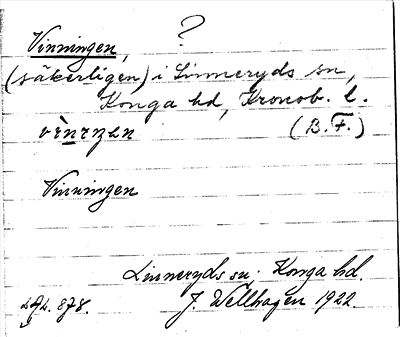 ?
Vinningen,
(säkerligen) i Linneryds sn,
Konga hd, Kronob. l.
(B.F.)
Vinningen
Linneryds sn. Konga hd.
J. Wellhagen 1922.